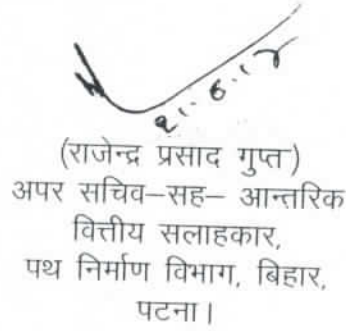 21.6.17
(राजेन्द्र प्रसाद गुप्त)
अपर सचिव–सह– आन्तरिक
वित्तीय सलाहकार,
पथ निर्माण विभाग, बिहार,
पटना।